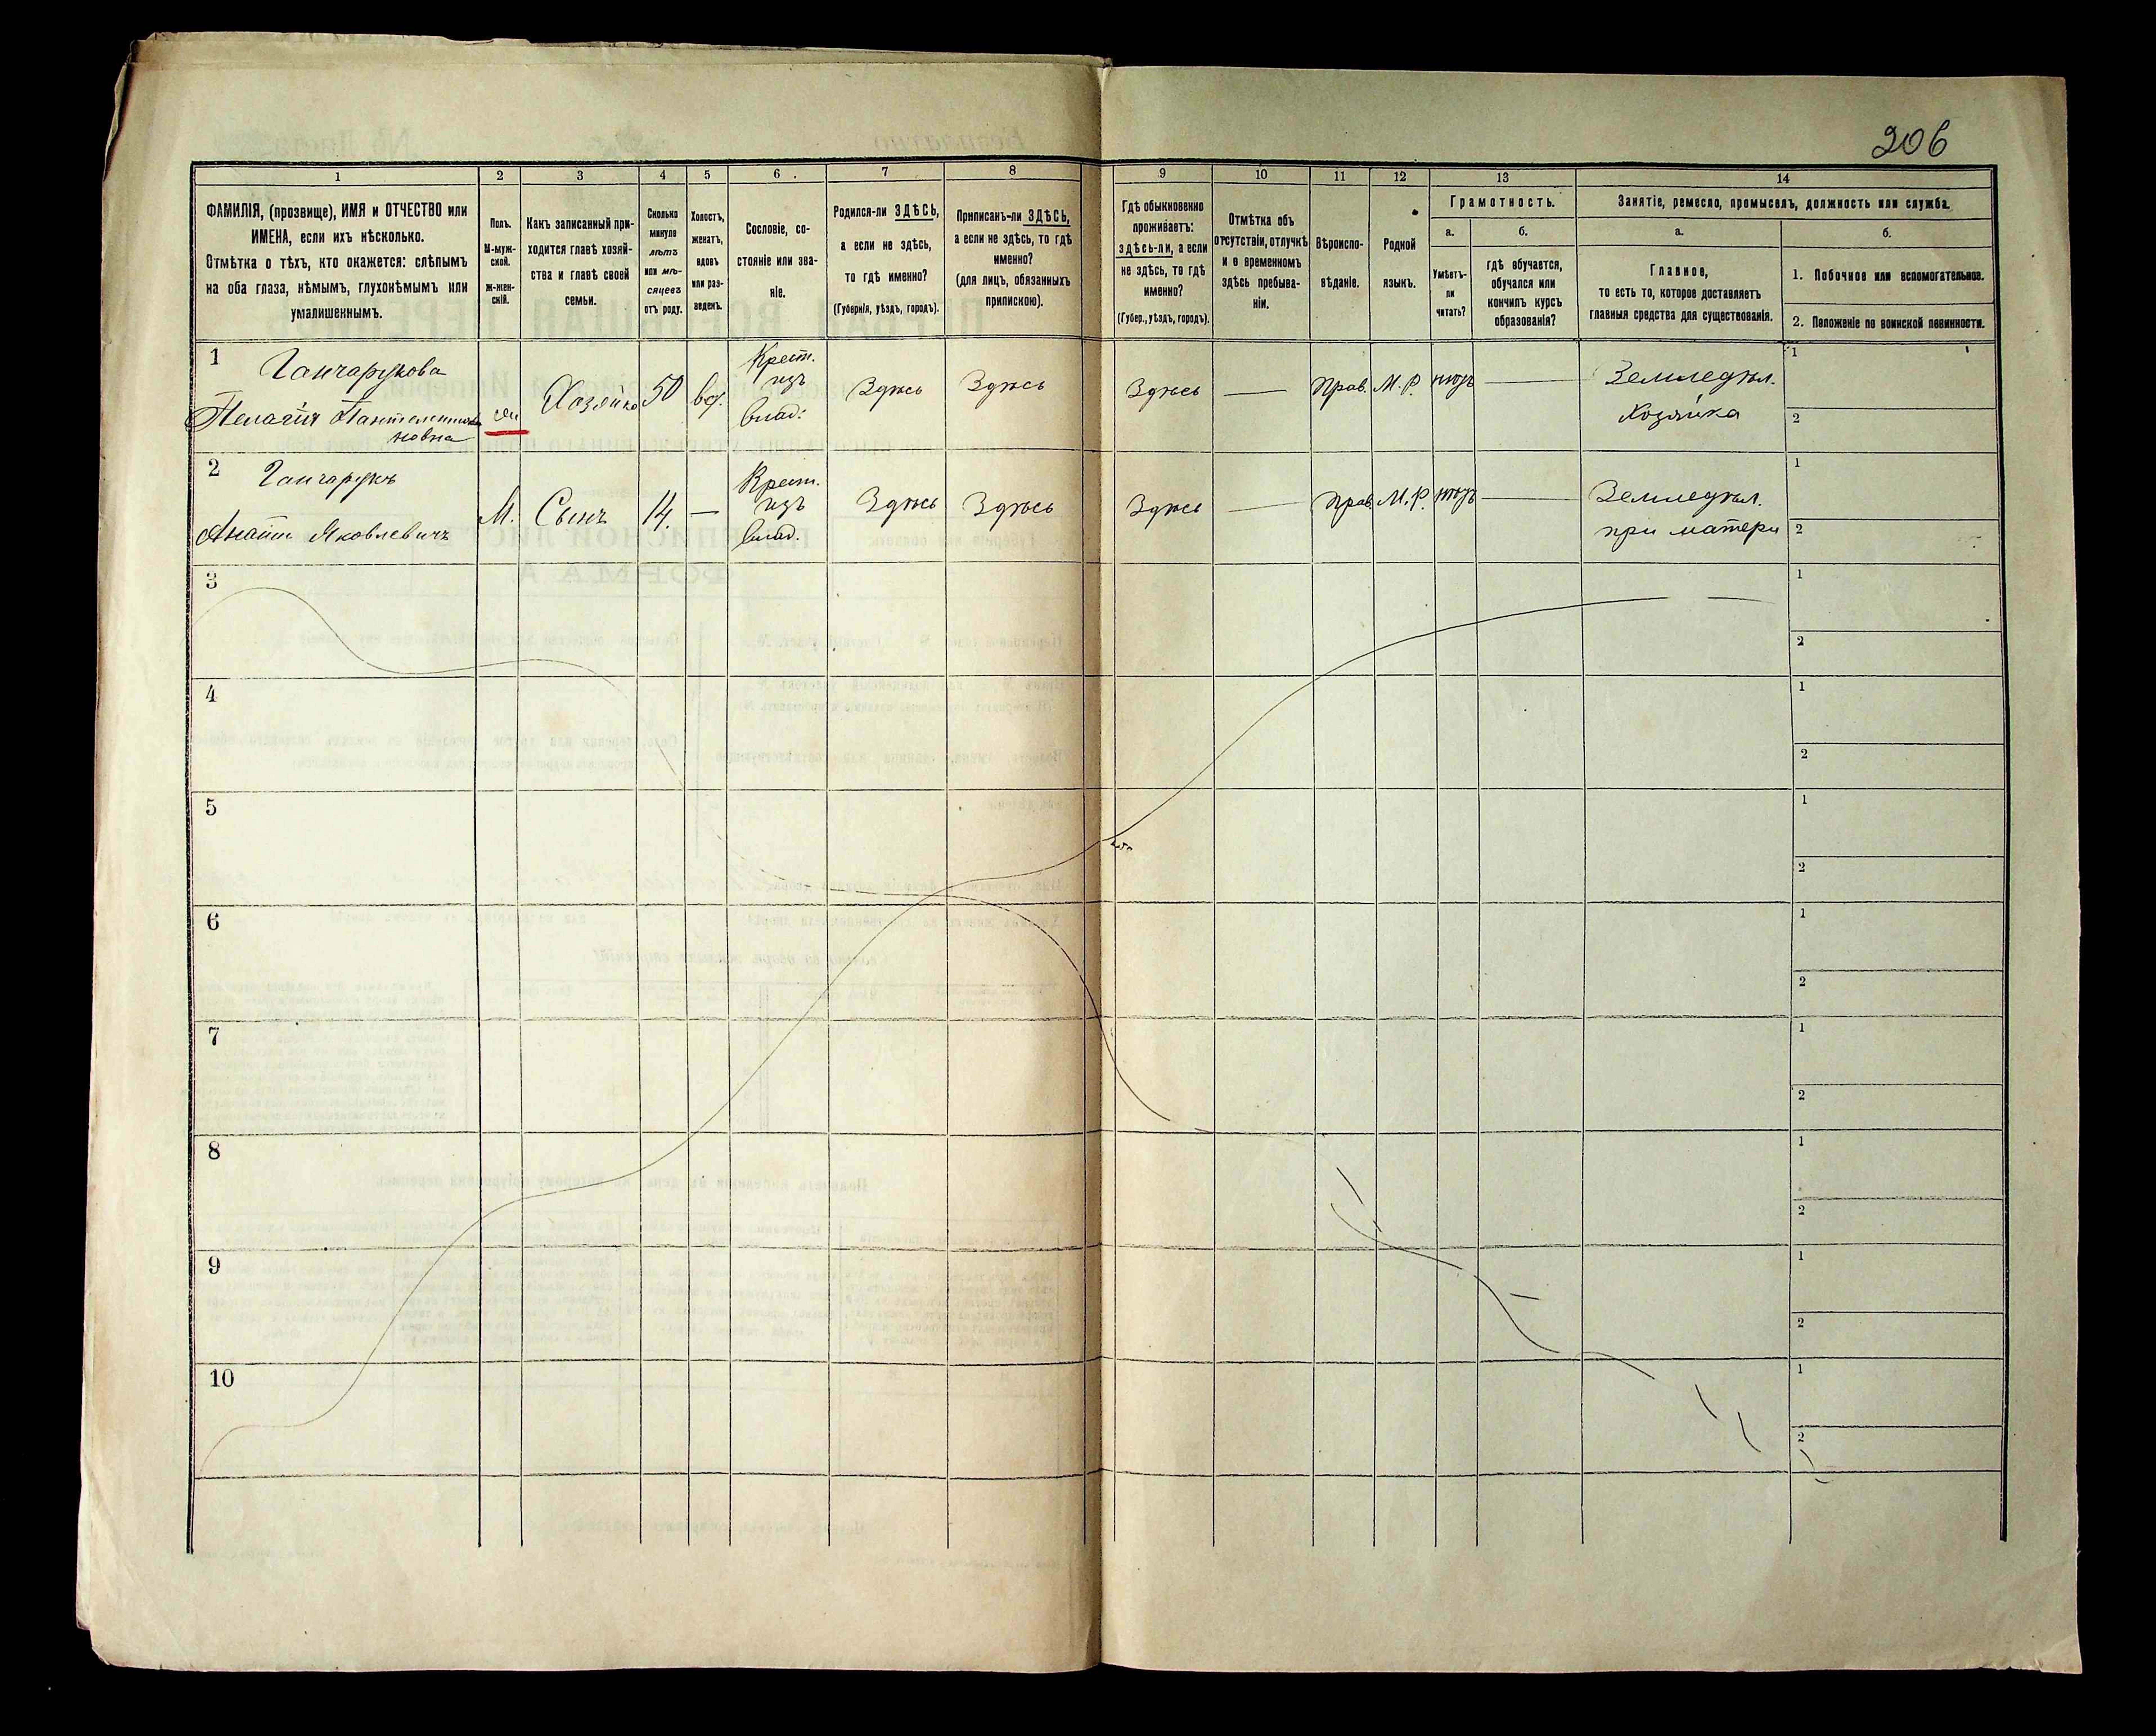 206
1
2
3
4
5
6
7
8
9
10
11
12
13
14
ФАМИЛІЯ, (прозвище), ИМЯ и ОТЧЕСТВО или
ИМЕНА, если ихъ нѣсколько.
Отмѣтка о тѣхъ, кто окажется: слѣпымъ
на оба глаза, нѣмымъ, глухонѣмымъ или
умалишеннымъ.
Полъ.
М-муж-
ской.
ж-жен-
скій.
Какъ записанный при-
ходится главѣ хозяй-
ства и главѣ своей
семьи.
Сколько
минуло
лѣтъ
или мѣ-
сяцевъ
отъ роду.
Холостъ,
женатъ,
вдовъ
или раз-
веденъ.
Сословіе, со-
стояніе или зва-
ніе.
Родился-ли ЗДѢСЬ,
а если не здѣсь,
то гдѣ именно?
(Губернія, уѣздъ, городъ).
Приписанъ-ли ЗДѢСЬ,
а если не здѣсь, то гдѣ
именно?
(для лицъ, обязанныхъ
припискою).
Гдѣ обыкновенно
проживаетъ:
здѣсь-ли, а если
не здѣсь, то гдѣ
именно?
(Губер., уѣздъ, городъ).
Отмѣтка объ
отсутствіи, отлучкѣ
и о временномъ
здѣсь пребыва-
ніи.
Вѣроиспо-
вѣданіе.
Родной
языкъ.
Грамотность.
а.
б.
Умѣетъ-
ли
читать?
гдѣ обучается,
обучался или
кончилъ курсъ
образованія?
Занятіе, ремесло, промыселъ, должность или служба.
а.
б.
Главное,
то есть то, которое доставляетъ
главныя средства для существованія.
1. Побочное или вспомогательное.
2. Положеніе по воинской повинности.
1
Ганчарукова
Пелагія Пантелеимо
новна
Хозяйка
50
вд.
Крест.
изъ
влад.
Здѣсь
Здѣсь
Здѣсь
—
Прав.
М. Р.
нѣтъ
—
Земледѣл.
Хозяйка
1
2
2
Ганчарукъ
Яковлевичъ
М.
Сынъ
14.
—
Крест.
изъ
влад.
Здѣсь
Здѣсь
Здѣсь
—
Прав.
М. Р.
нѣтъ
—
Земледѣл.
при матери
1
2
3
1
2
4
1
2
5
1
2
6
1
2
7
1
2
8
1
2
9
1
2
10
1
2